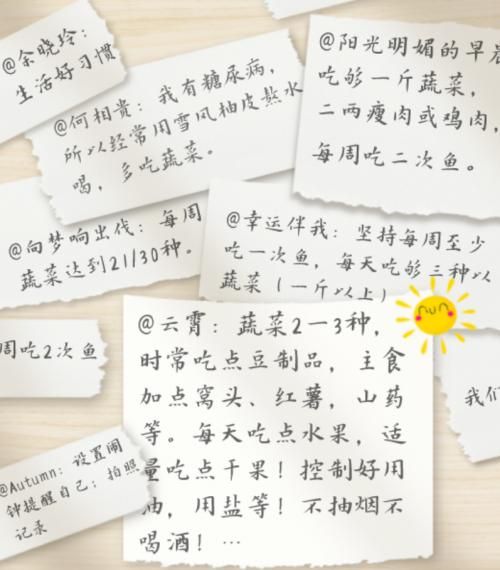 @余晓玲：
生活好习惯
@何相贵：我有糖尿病，
所以经常用雪风柚皮熬水
喝，多吃蔬菜。
@阳光明媚的早晨
吃够一斤蔬菜，
二两瘦肉或鸡肉，
每周吃二次鱼。
@向梦响出伐：每周
蔬菜达到21/30种。
@幸运伴我：坚持每周至少
吃一次鱼，每天吃够三种以
蔬菜（一斤以上）
周吃2次鱼
@云霄：蔬菜2一3种，
时常吃点豆制品，主食
加点窝头、红薯，山药
等。每天吃点水果，适
量吃点干果！控制好用
油，用盐等！不抽烟不
喝酒！…
我们
@Autumn：设置闹
钟提醒自己；拍照
记录